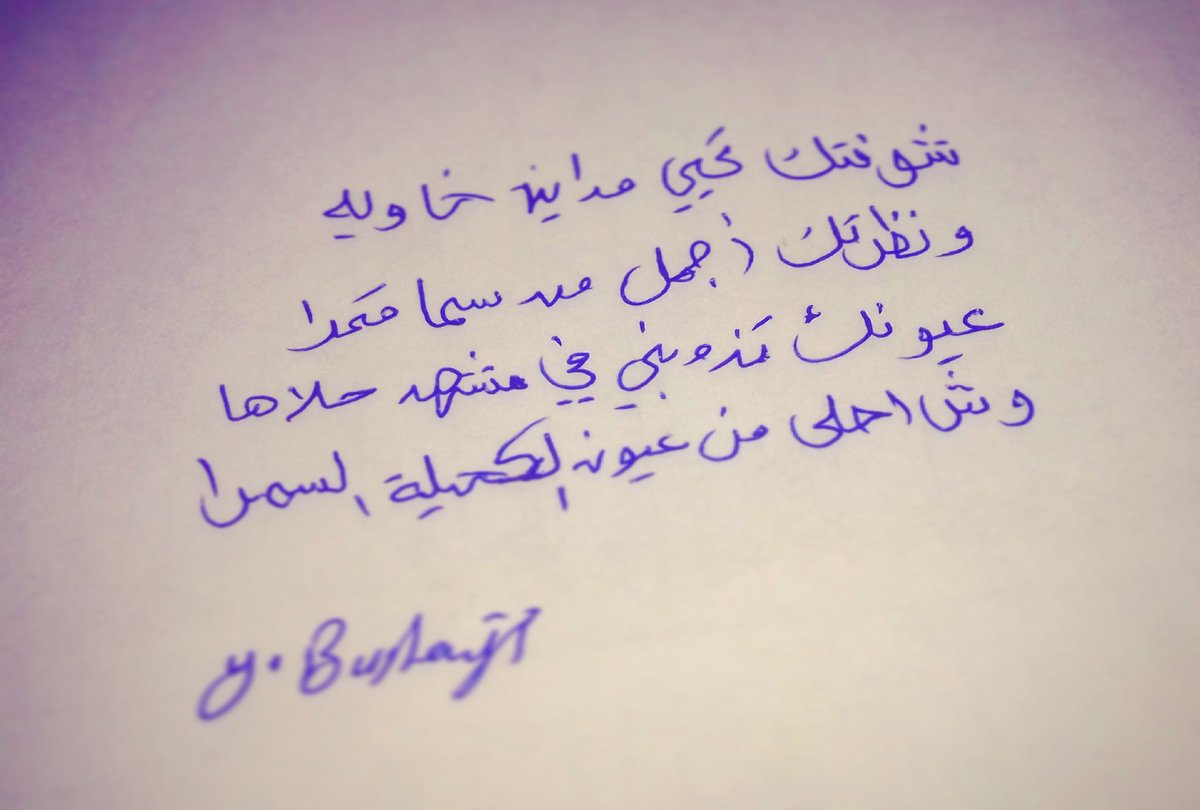 شوفتك تحيي مداين خاويه
ونظرتك أجمل من سما قمرا
عيونك تذوبني في مشهد حلاها
وش احلى من عيون الكحيلة السمرا
y. Bushayt